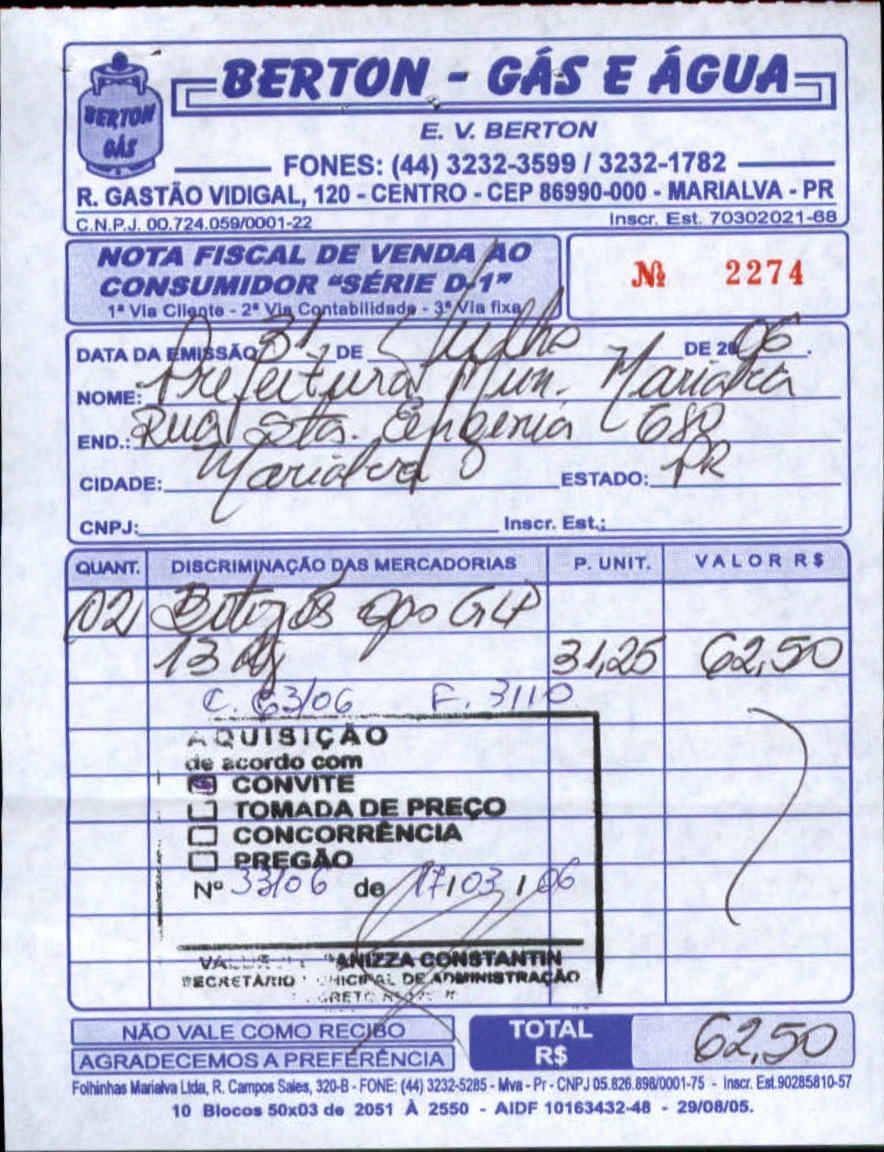 BERTON - GÁS E ÁGUA
BERTON
GÁS
E. V. BERTON
FONES: (44) 3232-3599 / 3232-1782
R. GASTÃO VIDIGAL, 120 - CENTRO - CEP 86990-000 - MARIALVA - PR
C.N.P.J. 00.724.059/0001-22 Inscr. Est. 70302021-68
NOTA FISCAL DE VENDA AO
CONSUMIDOR "SÉRIE D-1"
1ª Via Cliente - 2ª Via Contabilidade - 3ª Via fixa
Nº 2274
DATA DA EMISSÃO 31 DE Julho DE 2006.
NOME: Prefeitura Mun. Marialva
END.: Rua Sta. Efigenia 680
CIDADE: Marialva ESTADO: PR
CNPJ: Inscr. Est.:
QUANT. DISCRIMINAÇÃO DAS MERCADORIAS P. UNIT. VALOR R$
02 Botijões gás GLP
13 kg 31,25 62,50
C. 63/06 F. 3110
AQUISIÇÃO
de acordo com
CONVITE
TOMADA DE PREÇO
CONCORRÊNCIA
PREGÃO
Nº 33/06 de 17/03/06
ANIZZA CONSTANTIN
SECRETÁRIO DE ADMINISTRAÇÃO
NÃO VALE COMO RECIBO
AGRADECEMOS A PREFERÊNCIA
TOTAL
R$ 62,50
Folhinhas Marialva Ltda, R. Campos Sales, 320-B - FONE: (44) 3232-5285 - Mva - Pr - CNPJ 05.826.898/0001-75 - Inscr. Est.90285810-57
10 Blocos 50x03 de 2051 À 2550 - AIDF 10163432-48 - 29/08/05.